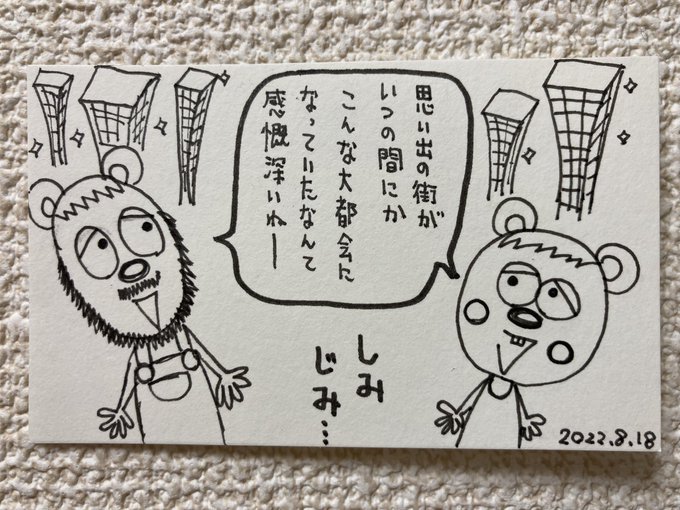 思い出の街が
いつの間にか
こんな大都会に
なっていたなんて
感慨深いねー
しみ
じみ…
2022.8.18